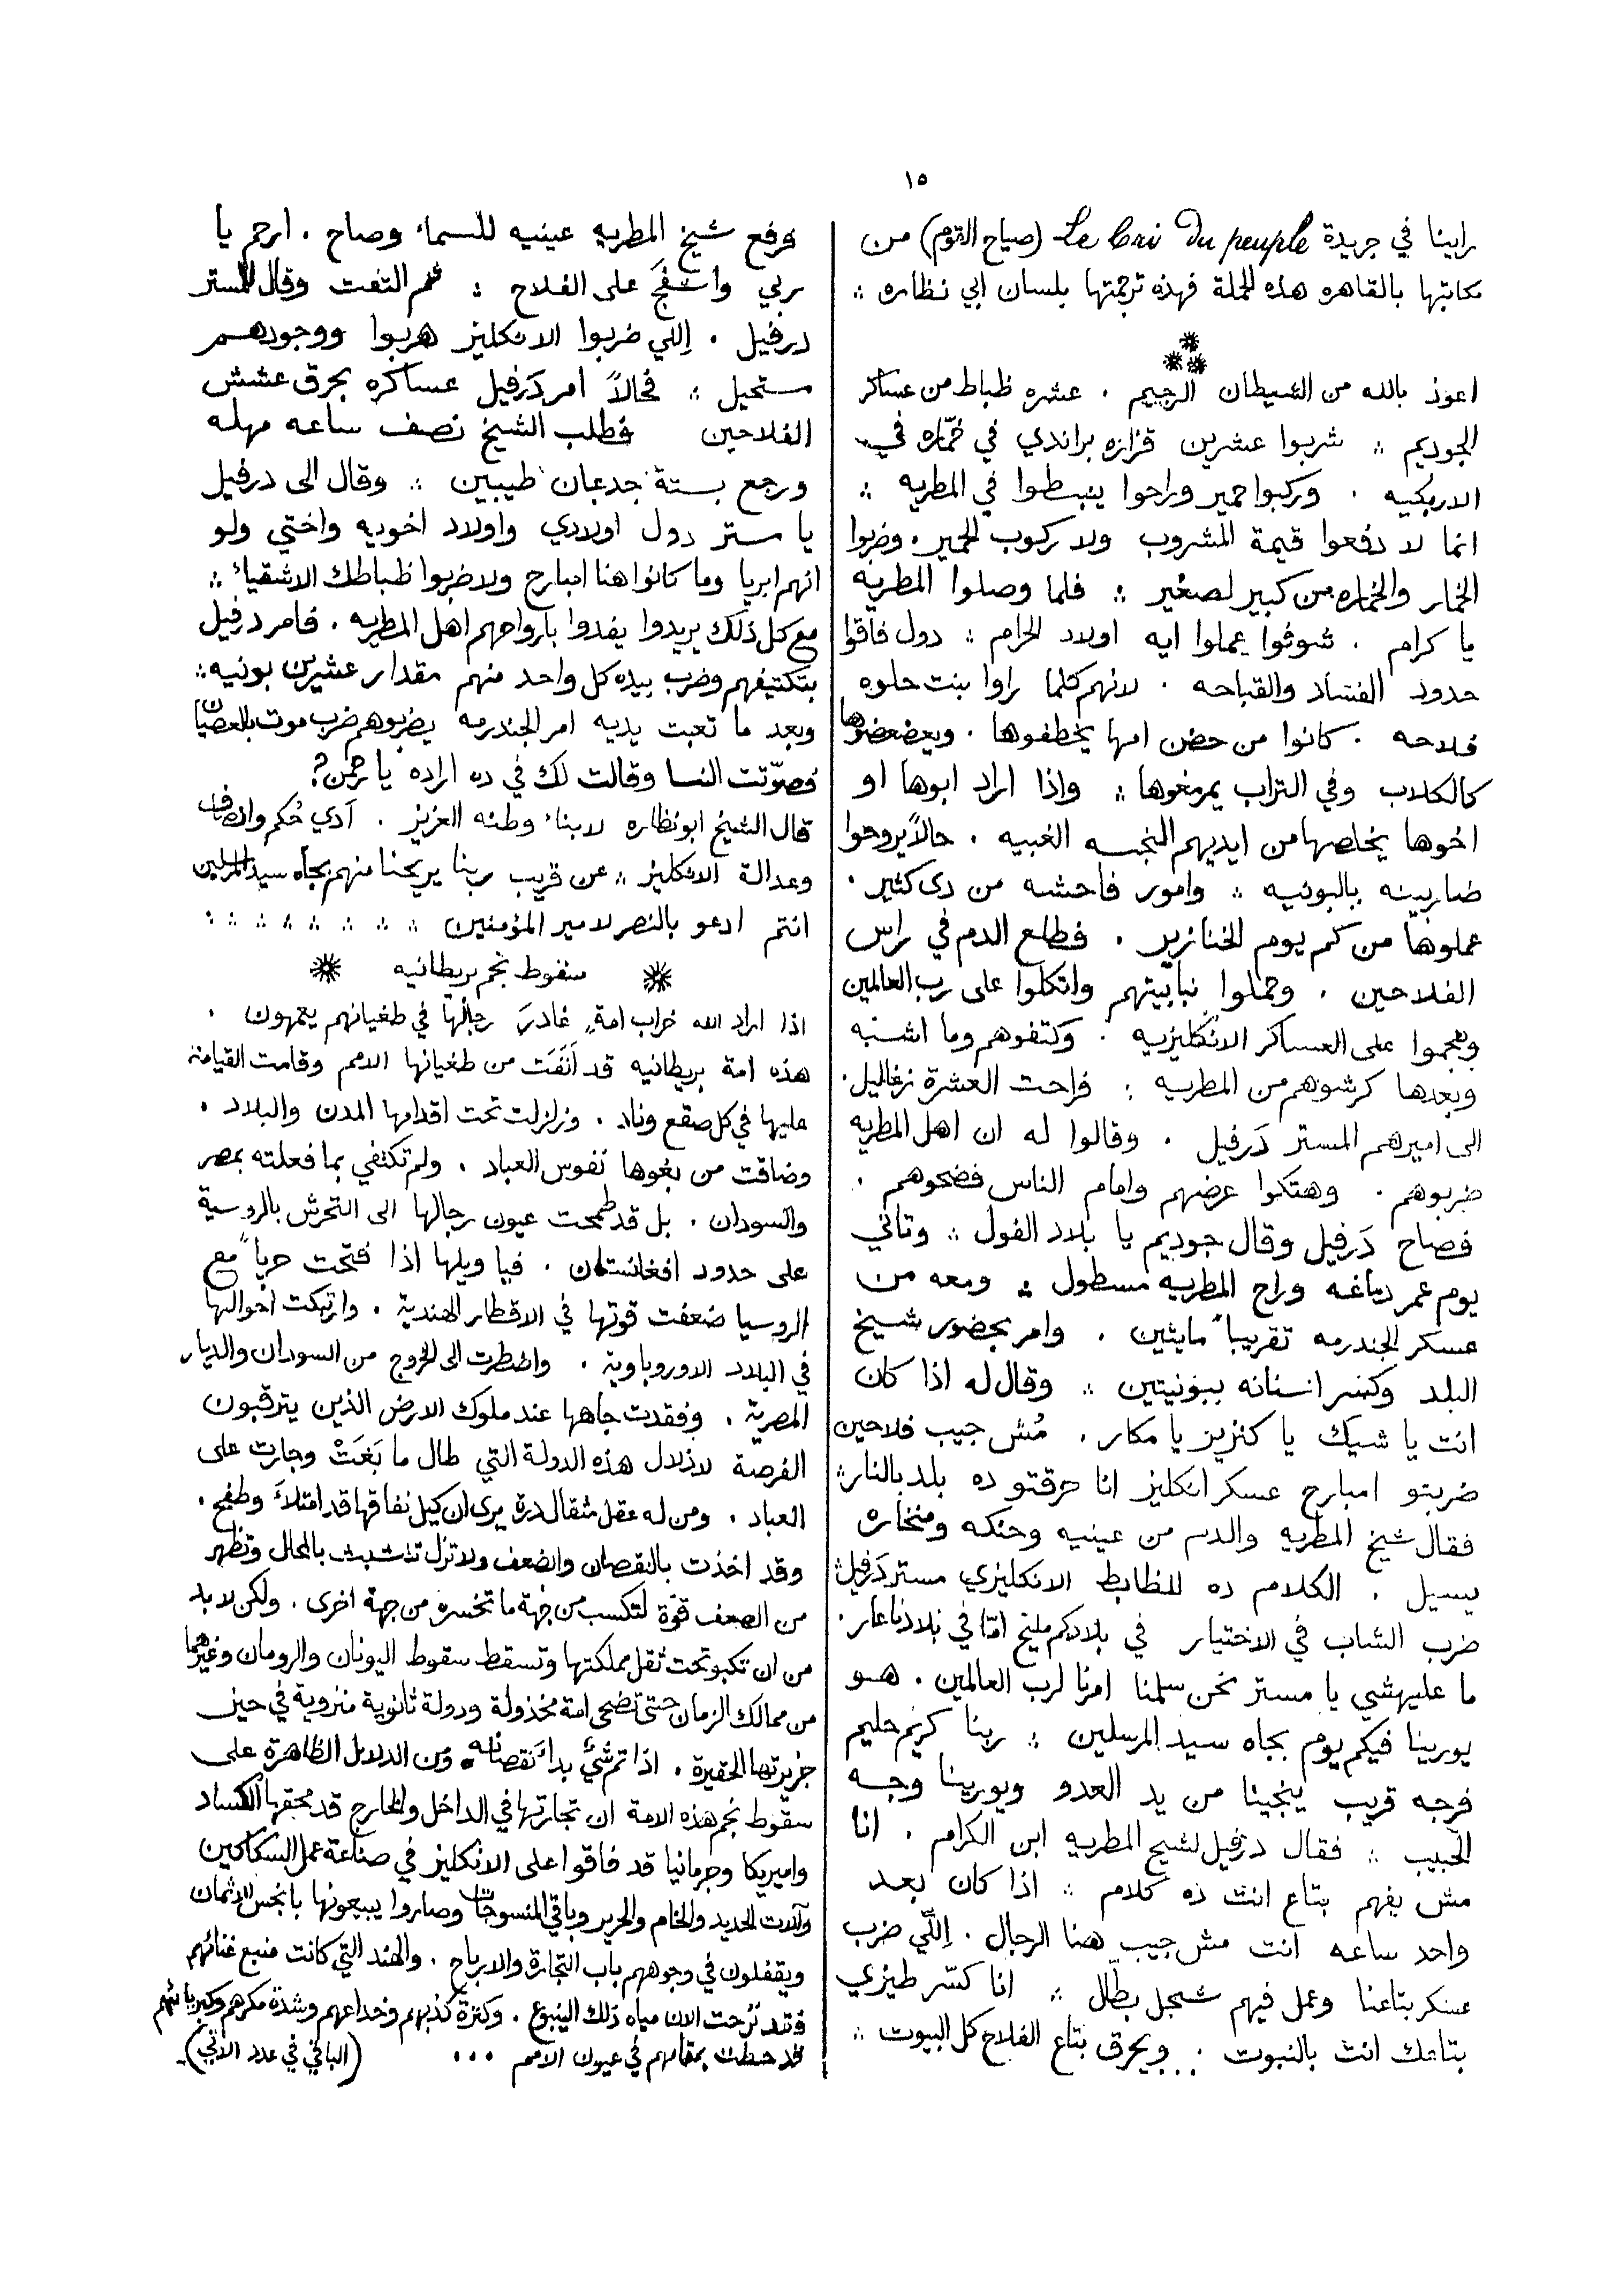 ١٥
راينا في جريدة Le Cri Du peuple (صياح القوم) من
مكاتبها بالقاهره هذه الجملة فهذه ترجمتها بلسان ابي نظاره ؞
اعوذ بالله من الشيطان الرجيم . عشره ظباط من عساكر
الجوديم ؞ شربوا عشرين قزازه براندي في خمّاره في
الازبكيه . وركبوا حمير وراحوا ينبسطوا في المطريه ؞
انما لا دفعوا قيمة المشروب ولا ركوب الحمير . وضربوا
الخمار والخماره من كبير لصغير ؞ فلما وصلوا المطريه
يا كرام . شوفوا عملوا ايه اولاد الحرام ؞ دول فاقوا
حدود الفساد والقباحه . لانهم كلما راوا بنت حلوه
فلاحه . كانوا من حضن امها يخطفوها . وبعضعضوها
كالكلاب وفي التراب يمرمغوها ؞ واذا اراد ابوها او
اخوها يخلصها من ايديهم النجسه الغبيه . حالاً يروحوا
ضاربينه بالبونيه ؞ وامور فاحشه من دى كتير .
عملوها من كم يوم الخنازير . فطلع الدم في راس
الفلاحين . وحملوا نبابيتهم واتكلوا على رب العالمين
وهجموا على العساكر الانكليزيه . وكتفوهم وما اشبه
وبعدها كرشوهم من المطريه ؞ فراحت العشرة زغاليل .
الى اميرهم المستر دَرفيل . وقالوا له ان اهل المطريه
ضربوهم . وهتكوا عرضهم وامام الناس فضحوهم .
فصاح دَرفيل وقال جوديم يا بلاد الفول ؞ وتاني
يوم عمر دماغه وراح المطريه مسطول ؞ ومعه من
عسكر الجندرمه تقريباً مايتين . وامر بحضور شيخ
البلد وكسر اسنانه ببونيتين ؞ وقال له اذا كان
انت يا شيك يا كنزير يا مكار . مُش جيب فلاحين
ضربتو امبارح عسكر انكليز انا حرقتو ده بلد بالنار ؞
فقال شيخ المطريه والدم من عينيه وحنكه ومنخاره
يسيل . الكلام ده للظابط الانكليزي مستر دَرفيل ؞
ضرب الشاب في الاختيار في بلادكم مليح امّا في بلادنا عار .
ما عليهشي يا مستر نحن سلمنا امرنا لرب العالمين . هو
يورينا فيكم يوم بجاه سيد المرسلين ؞ ربنا كريم حليم
فرجه قريب ينجينا من يد العدو ويورينا وجه
الحبيب ؞ فقال درفيل لشيخ المطريه ابن الكرام . انا
مش يفهم بتاع انت ده كلام ؞ اذا كان بعد
واحد ساعه انت مش جيب هنا الرجال . اِللّي ضرب
عسكر بتاعنا وعمل فيهم شجل بطّال ؞ انا كسّر طيزي
بتاعك انت بالنبوت . ويحرق بتاع الفلاح كل البيوت ؞
فرفع شيخ المطريه عينيه للسماء وصاح . ارحم يا
ربي على الفلاح ؞ ثم التفت وقال للمستر
درفيل . اِللي ضربوا الانكليز هربوا ووجودهم
مستحيل ؞ فحالاً امر دَرفيل عساكره بحرق عشش
الفلاحين فطلب الشيخ نصف ساعه مهله
ورجع بستة جدعان طيبين ؞ وقال الى درفيل
يا مستر دول اولادي واولاد اخويه واختي ولو
انهم ابريا وما كانوا هنا امبارح ولا ضربوا ظباطك الاشقياء ؞
مع كل ذلك يريدوا يفدوا بارواحهم اهل المطريه . فامر درفيل
بتكتيفهم وضرب بيده كل واحد منهم مقدار عشرين بونيه ؞
وبعد ما تعبت يديه امر الجندرمه يضربوهم ضرب موت بالعصيّان
فصوّتت النسا وقالت لك في ده اراده يا رحمن ?
قال الشيخ ابو نظاره لابناء وطنه العزيز . آدي حُكم وانصاف
وعدالة الانكليز ؞ عن قريب ربنا يريحنا منهم بجاه سيد المرسلين
انتم ادعو بالنصر لامير المؤمنين ؞ ؞ ؞ ؞ ؞ ؞ ؞
سقوط نجم بريطانيه
اذا اراد الله خراب امةٍ غادرَ رجالها في طغيانهم يعمهون .
هذه امة بريطانيه قد اَنَفَت من طغيانها الامم وقامت القيامة
عليها في كل صقع وناد . وزلزلت تحت اقدامها المدن والبلاد .
وضاقت من بغوها نفوس العباد . ولم تكتفي بما فعلته بمصر
والسودان . بل قد طمحت عيون رجالها الى التحرش بالروسية
على حدود افغانستان . فيا ويلها اذا فتحت حرباً مع
الروسيا ضعفت قوتها في الاقطار الهندية . وارتبكت احوالها
في البلاد الاوروباوية . واضطرت الى الخروج من السودان والديار
المصرية . وفقدت جاهها عند ملوك الارض الذين يترقبون
الفرصة لاذلال هذه الدولة التي طال ما بَغَتْ وجارت على
العباد . ومن له عقل مثقال ذرة يرى ان كيل نفاقها قد امتلأ وطفح .
وقد اخذت بالنقصان والضعف ولا تزل تتشبث بالمحال وتظهر
من الضعف قوّة لتكسب من جهة ما تخسره من جهة اخرى . ولكن لا بد
من ان تكبو تحت ثقل مملكتها وتسقط سقوط اليونان والرومان وغيرهما
من ممالك الزمان حتى تضحى امة مخذولة ودولة ثانوية منزوية في حيز
جزيرتها الحقيرة . اذا تم شيٌ بداَ نقصانه . ومن الدلايل الظاهرة على
سقوط نجم هذه الامة ان تجارتها في الداخل والخارج قد محقها الكساد
واميريكا وجرمانيا قد فاقوا على الانكليز في صناعة عمل السكاكين
وآلات الحديد والخام والحرير وباقي المنسوجات وصاروا يبيعونها بابخس الاثمان
ويقفلون في وجوههم باب التجارة والارباح . والهند التي كانت منبع غنائهم
فقد نزحت الان مياه ذلك الينبوع . وكثرة كذبهم وخداعهم وشدة مكرهم وكبريائهم
قد حطت بمقامهم في عيون الامم ... (الباقي في عدد الاتي)